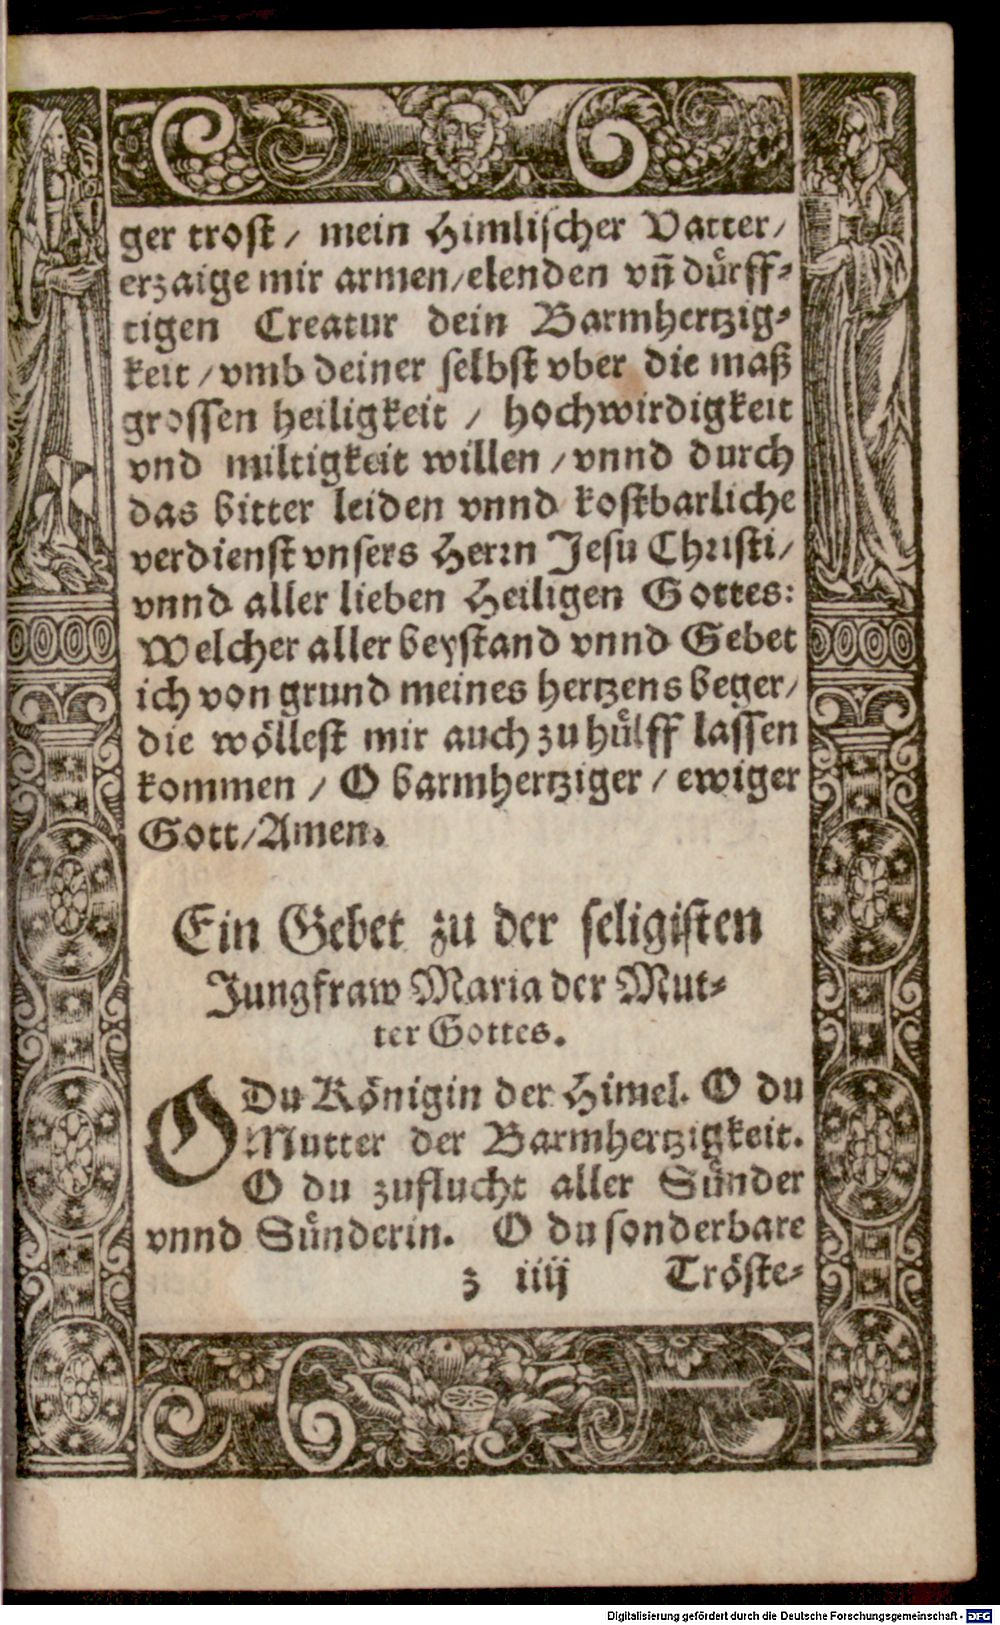 ger trost / mein Himlischer Vatter /
erzaige mir armen / elenden vn̄ dürff-
tigen Creatur dein Barmhertzig-
keit / vmb deiner selbst vber die maß
grossen heiligkeit / hochwirdigkeit
vnd miltigkeit willen / vnnd durch
das bitter leiden vnnd kostbarliche
verdienst vnsers Herrn Jesu Christi /
vnnd aller lieben Heiligen Gottes:
Welcher aller beystand vnnd Gebet
ich von grund meines hertzens beger /
die wöllest mir auch zu hülff lassen
kommen / O barmhertziger / ewiger
Gott / Amen.
Ein Gebet zu der seligisten
Jungfraw Maria der Mut-
ter Gottes.
O Du Königin der Himel. O du
Mutter der Barmhertzigkeit.
O du zuflucht aller Sünder
vnnd Sünderin. O du sonderbare
z iiij Tröste-
Digitalisierung gefördert durch die Deutsche Forschungsgemeinschaft - DFG